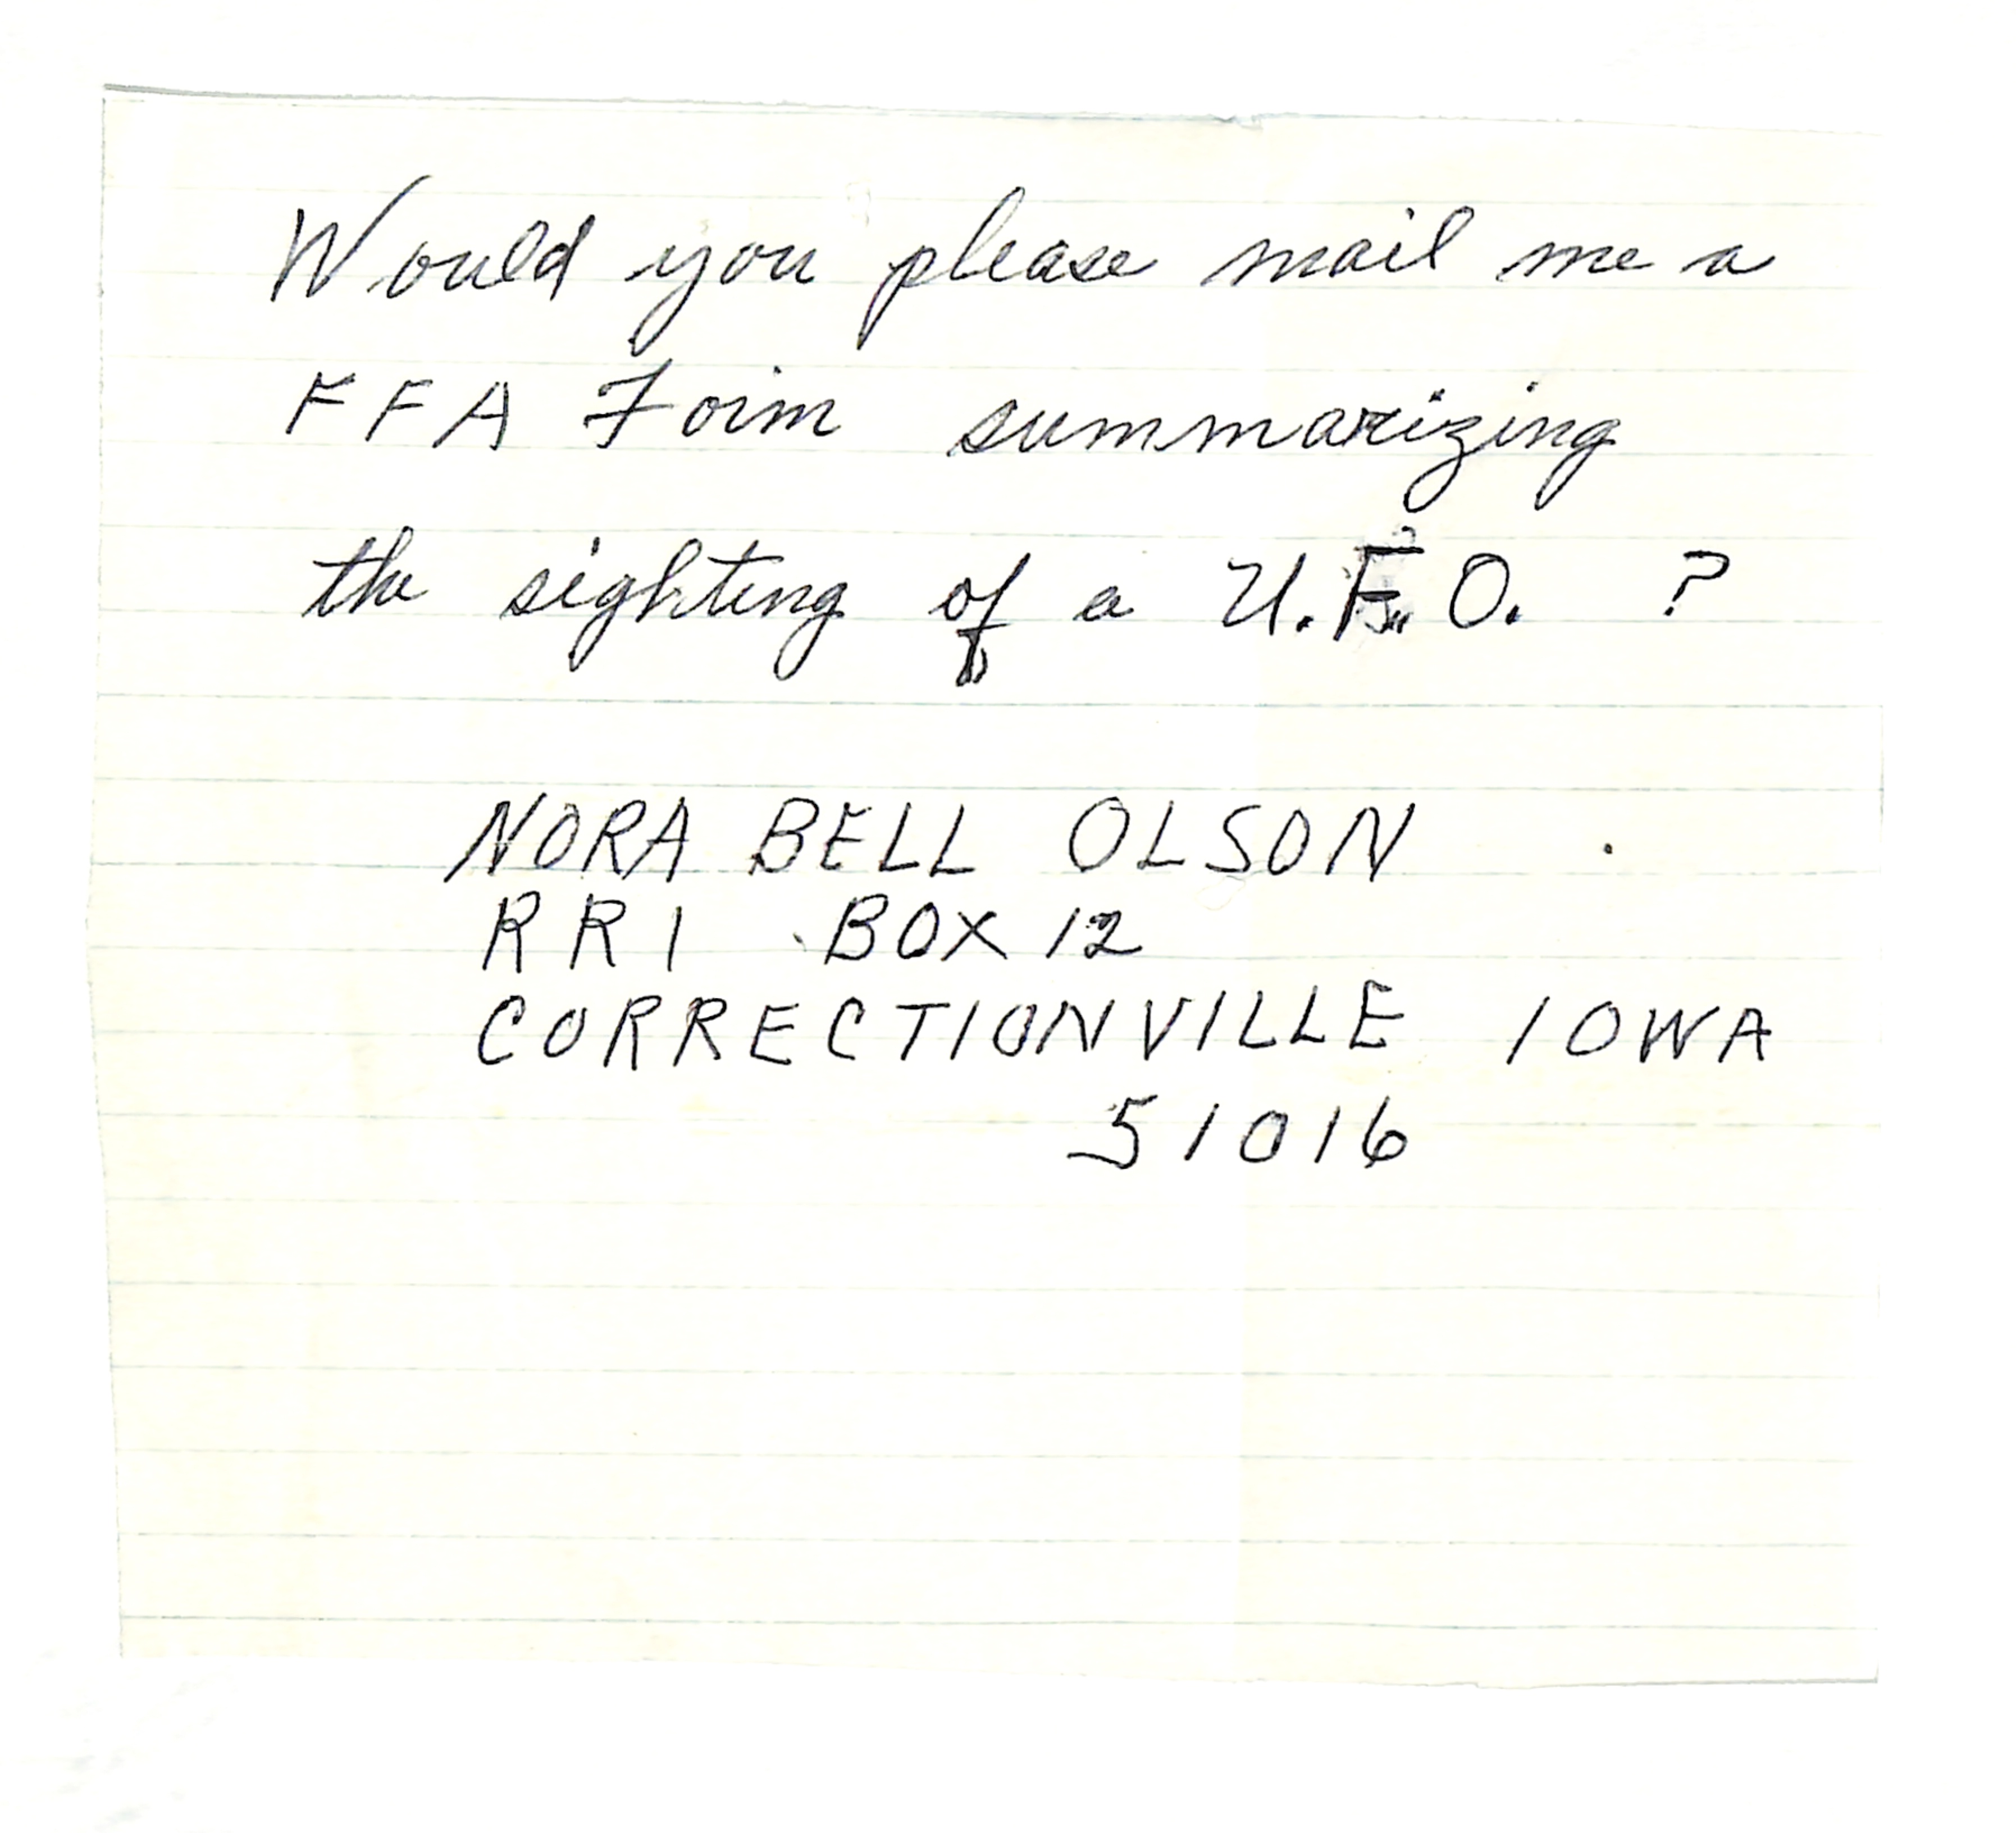 Would you please mail me a
FFA Form summarizing
the sighting of a U.F.O. ?
NORA BELL OLSON
RR1 BOX 12
CORRECTIONVILLE IOWA
51016